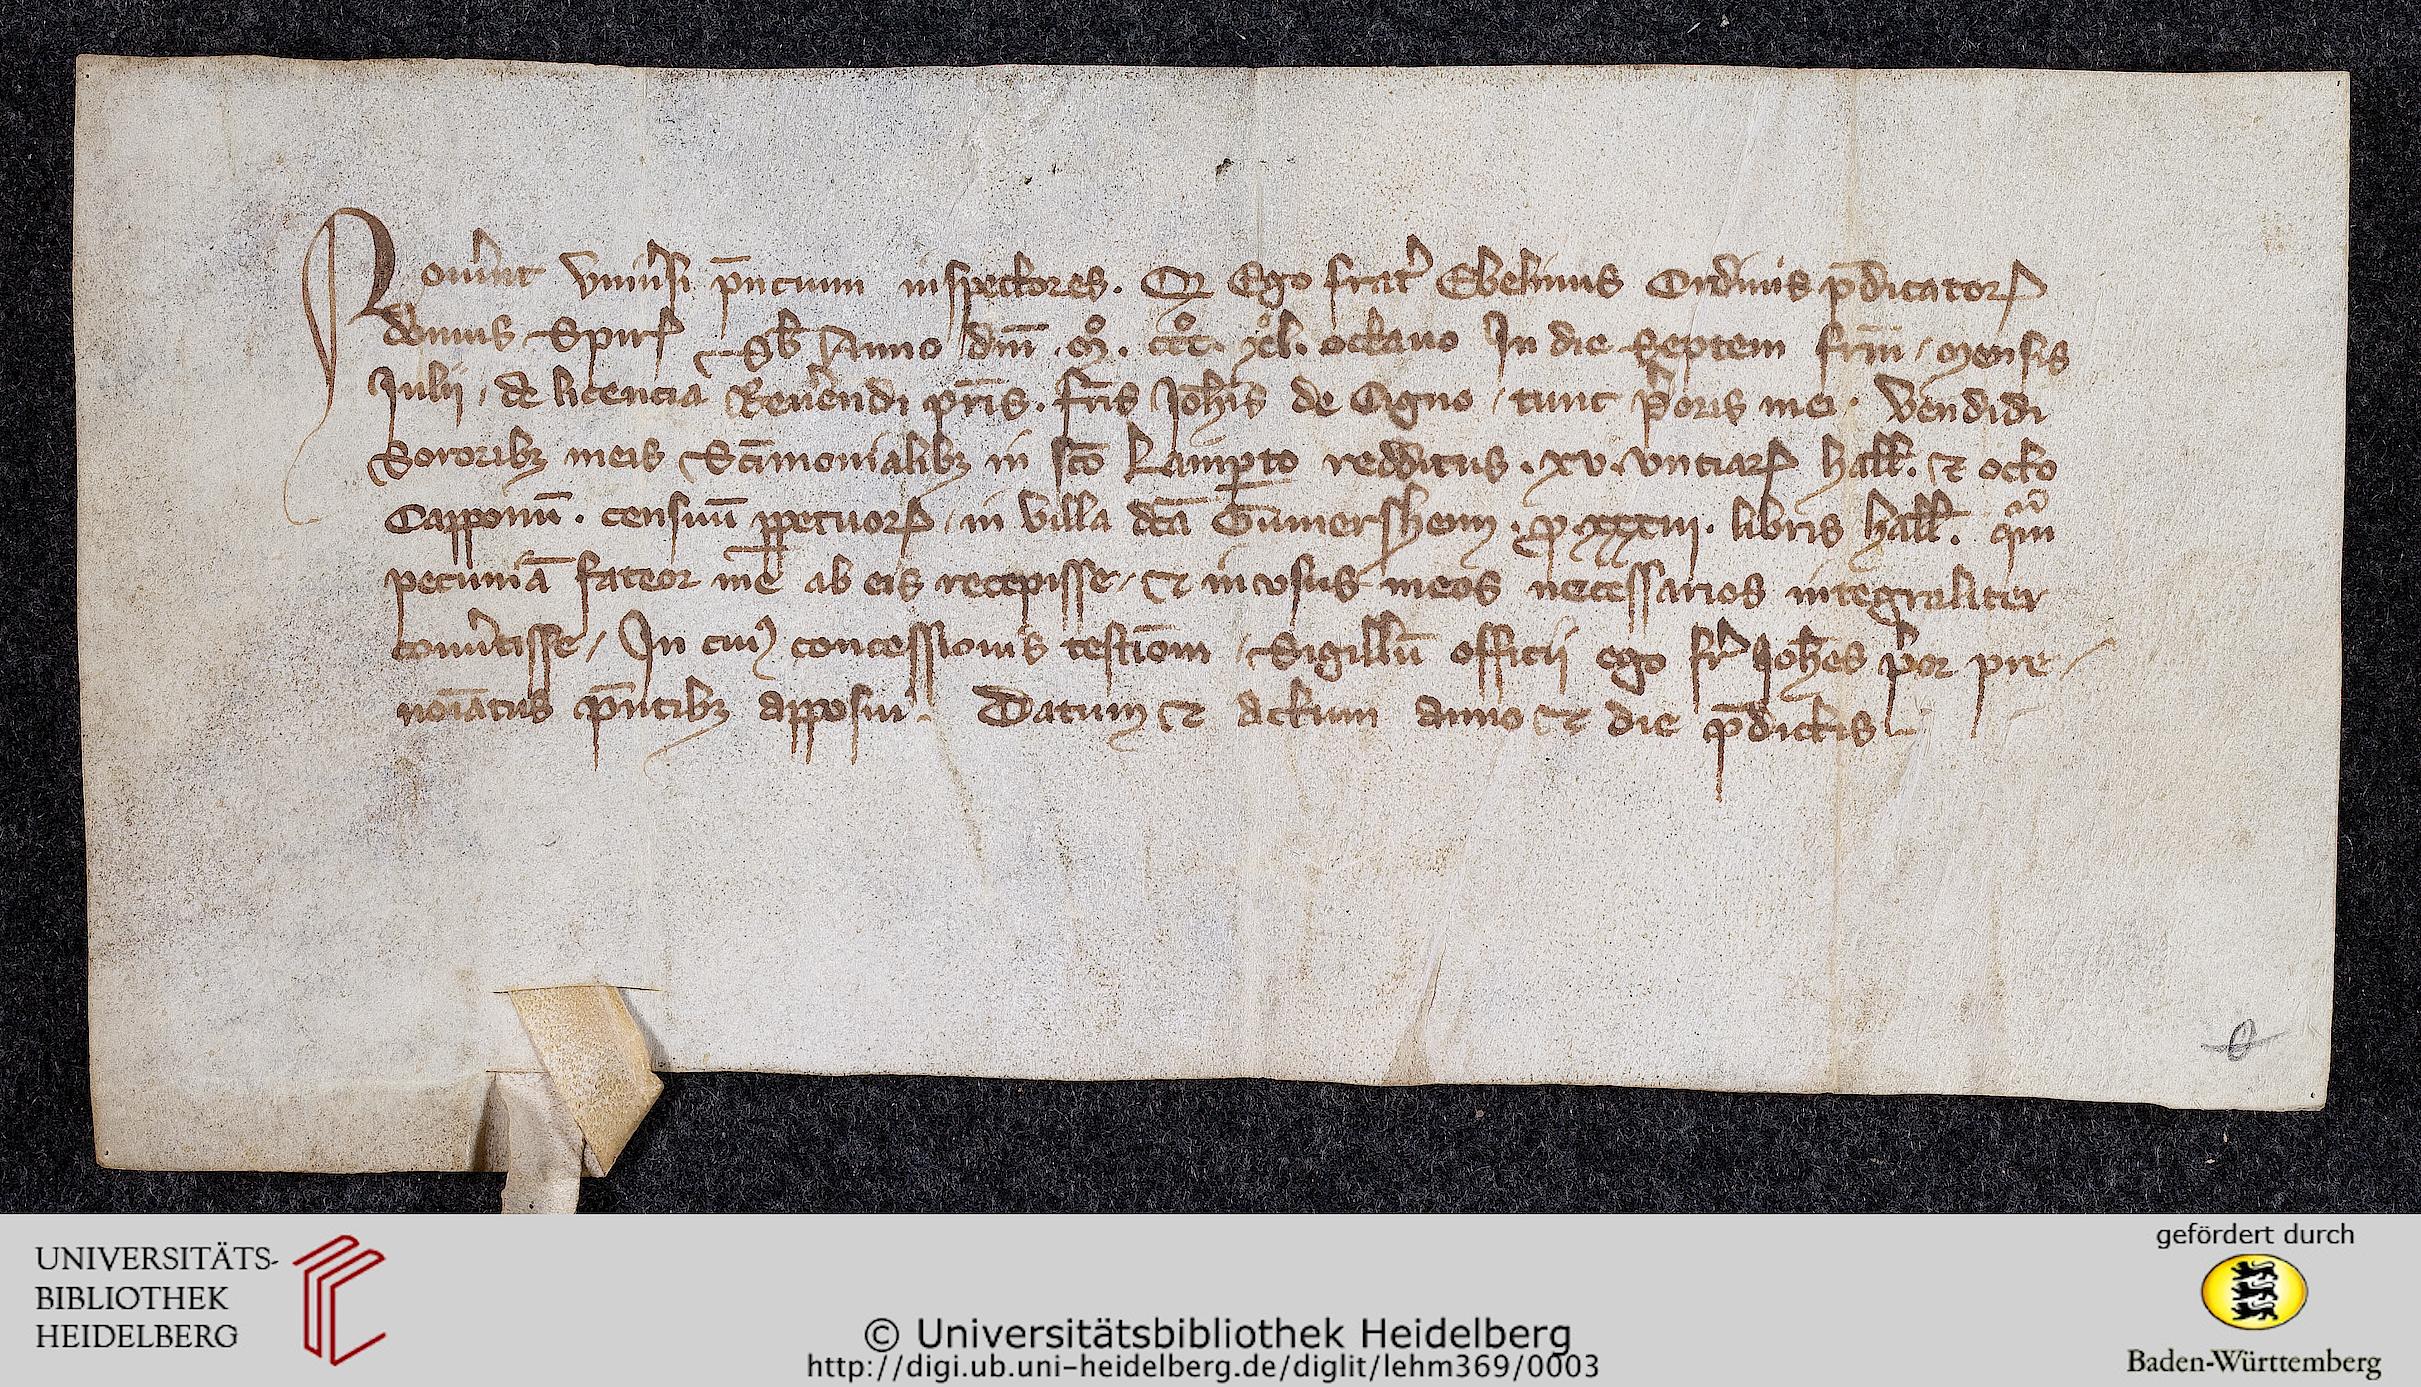 Nouẽint vniũsi p̄ncium inspectores. Qͥ Ego frat͛ Ebelinus Ordinis p̄dicatorꝝ
domus Spirꝝ Sb̄ Anno dn̄i .mͦ. cccͦ. xͦl. octauo In die septem frm̄ / mensis
Iulii / de licencia Reuẽendi pr̄is. fr̄is Ioh̄is de Cigno / tunc p͛oris mei / vendidi
Sororibꝫ meis Sc̄imonialibꝫ in sc̄o Lamꝑto redditus . xv. vnciarꝝ hall̄. ⁊ octo
Capponū . censuū ꝑpetuorꝝ / in villa dc̄a Gūmersheim . ꝓ xxxiii . libris hall̄. qᷓm
pecuniā fateor me ab eis recepisse / ⁊ in vsus meos necessarios integraliter
conũtisse / In cuiꝰ concessionis testiōm / Sigillū officii ego fr̄ Ioh̄es p͛or pre-
noīatus p̄ntibꝫ apposui . Datum ⁊ actum anno ⁊ die p̄dictis
UNIVERSITÄTS-
BIBLIOTHEK
HEIDELBERG
© Universitätsbibliothek Heidelberg
http://digi.ub.uni-heidelberg.de/diglit/lehm369/0003
gefördert durch
Baden-Württemberg